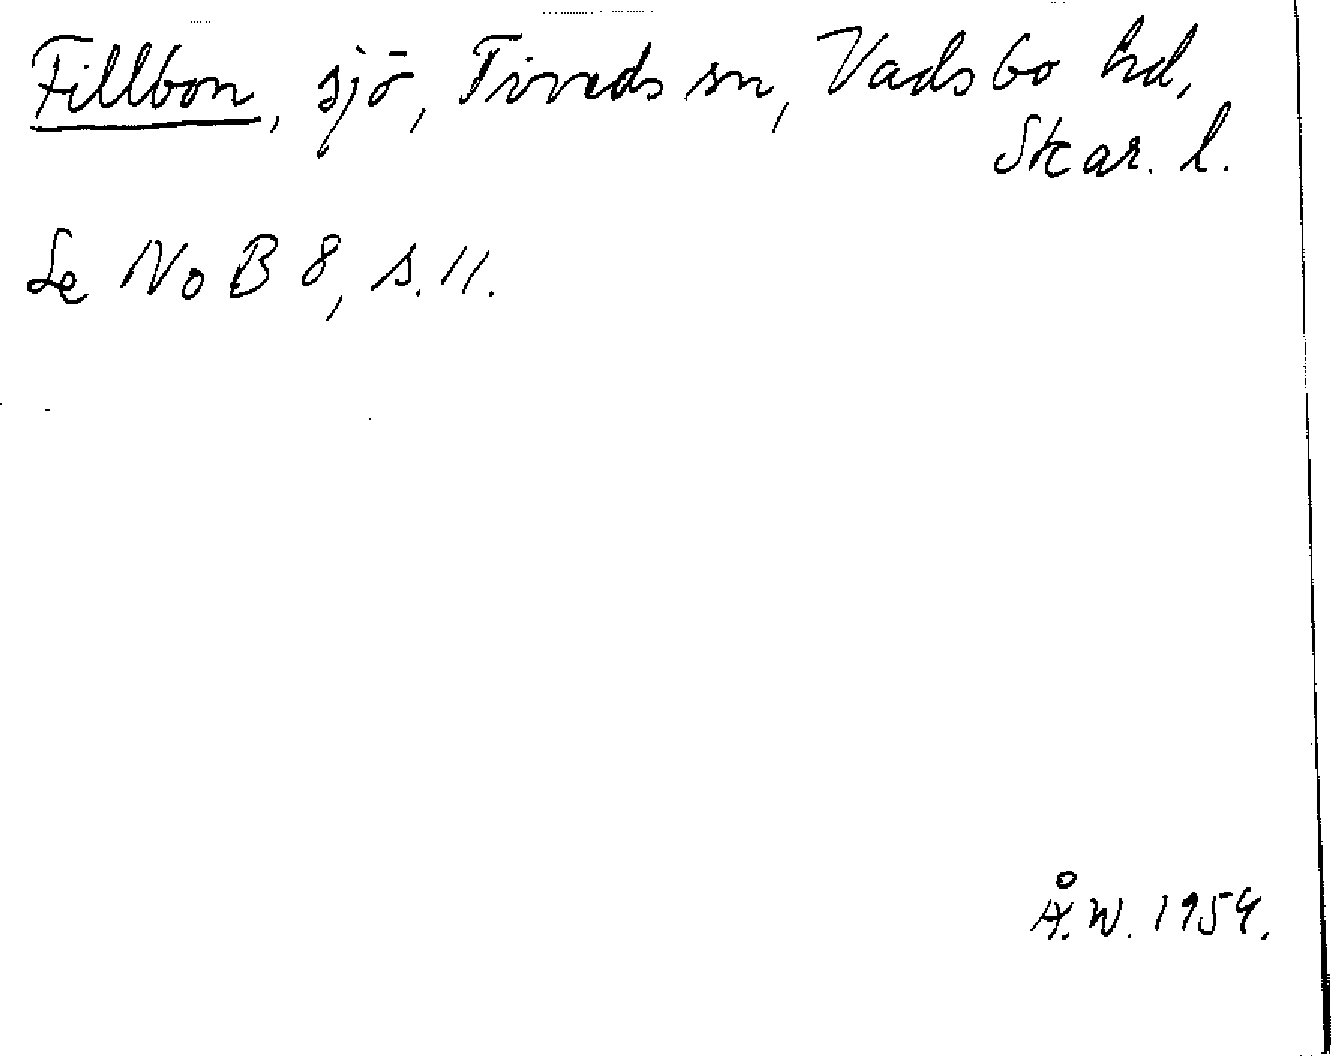 Fillbon, sjö, Tiveds sn, Vadsbo hd,
Skar. l.
Se NoB 8, s. 11.
Å.W. 1954.